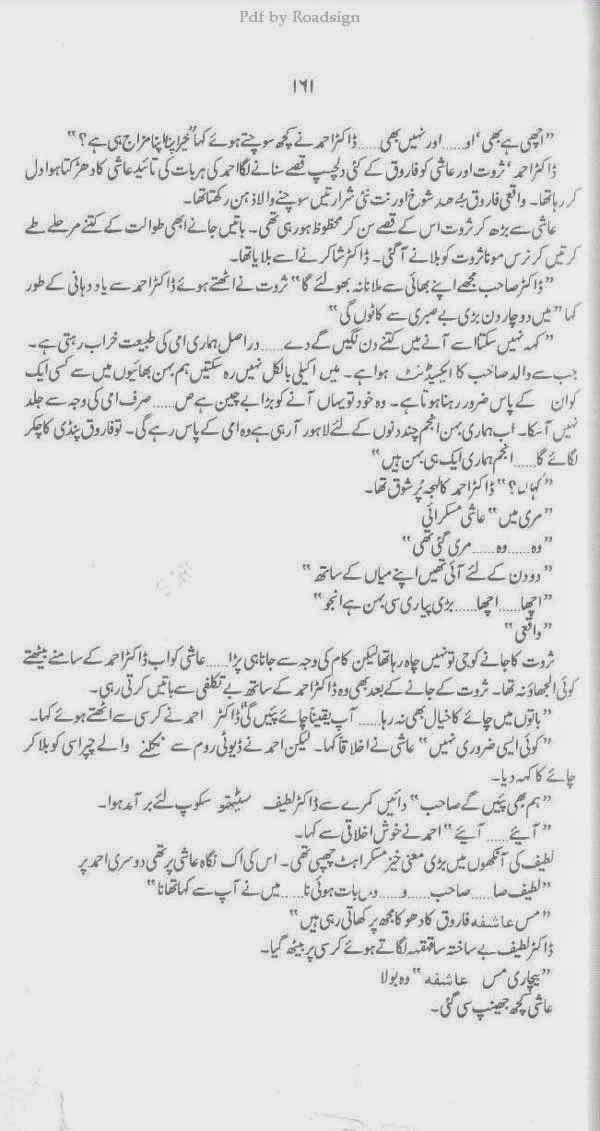 Pdf by Roadsign
۱۶۱
"اچھی ہے بھی 'او..... اور نہیں بھی..... ڈاکٹر احمد نے کچھ سوچتے ہوئے کہا "خیر اپنا اپنا مزاج ہی ہے؟"
ڈاکٹر احمد' ثروت اور عاشی کو فاروق کے کئی دلچسپ قصے سنانے لگا احمد کی ہر بات کی تائید عاشی کا دھڑکتا ہوا دل
کر رہا تھا۔ واقعی فاروق بے حد شوخ اور نت نئی شرارتیں سوچنے والا ذہن رکھتا تھا۔
عاشی سے بڑھ کر ثروت اس کے قصے سن کر محظوظ ہو رہی تھی۔ باتیں جانے ابھی طوالت کے کتنے مرحلے طے
کرتیں کہ نرس مونا ثروت کو بلانے آ گئی۔ ڈاکٹر شاکر نے اسے بلایا تھا۔
"ڈاکٹر صاحب مجھے اپنے بھائی سے ملانا نہ بھولئے گا" ثروت نے اٹھتے ہوئے ڈاکٹر احمد سے یاد دہانی کے طور
کہا "میں دو چار دن بڑی بے صبری سے کاٹوں گی"
"کہہ نہیں سکتا اسے آنے میں کتنے دن لگیں گے دے..... دراصل ہماری امی کی طبیعت خراب رہتی ہے۔
جب سے والد صاحب کا ایکسیڈنٹ ہوا ہے۔ میں اکیلی بالکل نہیں رہ سکتیں ہم بہن بھائیوں میں سے کسی ایک
کو ان کے پاس ضرور رہنا ہوتا ہے۔ وہ خود تو یہاں آنے کو بڑا بے چین ہے ص..... صرف امی کی وجہ سے جلد
نہیں آ سکا۔ اب ہماری بہن انجم چند دنوں کے لئے لاہور آ رہی ہے وہ امی کے پاس رہے گی۔ تو فاروق پنڈی کا چکر
لگائے گا..... انجم ہماری ایک ہی بہن ہیں"
"کہاں؟" ڈاکٹر احمد کا لہجہ پُر شوق تھا۔
"مری میں" عاشی مسکرائی
"وہ..... وہ..... مری گئی تھی"
"دو دن کے لئے آئی تھیں اپنے میاں کے ساتھ"
"اچھا..... اچھا..... بڑی پیاری سی بہن ہے انجو"
"واقعی"
ثروت کا جانے کو جی تو نہیں چاہ رہا تھا لیکن کام کی وجہ سے جانا ہی پڑا..... عاشی کو اب ڈاکٹر احمد کے سامنے بیٹھتے
کوئی الجھاؤ نہ تھا۔ ثروت کے جانے کے بعد بھی وہ ڈاکٹر احمد کے ساتھ بے تکلفی سے باتیں کرتی رہی۔
"باتوں میں چائے کا خیال بھی نہ رہا..... آپ یقیناً چائے پئیں گی" ڈاکٹر احمد نے کرسی سے اٹھتے ہوئے کہا۔
"کوئی ایسی ضروری نہیں" عاشی نے اخلاقاً کہا۔ لیکن احمد نے ڈیوٹی روم سے نکلنے والے چپراسی کو بلا کر
چائے کا کہہ دیا۔
"ہم بھی پئیں گے صاحب" دائیں کمرے سے ڈاکٹر لطیف سٹیتھو سکوپ لئے بر آمد ہوا۔
"آیئے..... آیئے" احمد نے خوش اخلاقی سے کہا۔
لطیف کی آنکھوں میں بڑی معنی خیز مسکراہٹ چھپی تھی۔ اس کی اک نگاہ عاشی پر تھی دوسری احمد پر
"لطیف صا..... صاحب..... و..... وہی بات ہوئی نا..... میں نے آپ سے کہا تھا نا"
"مس عاشفه فاروق کا دھوکا مجھ پر کھاتی رہی ہیں"
ڈاکٹر لطیف بے ساختہ سا قہقہہ لگاتے ہوئے کرسی پر بیٹھ گیا۔
"بیچاری مس عاشفه" وہ بولا
عاشی کچھ جھینپ سی گئی۔